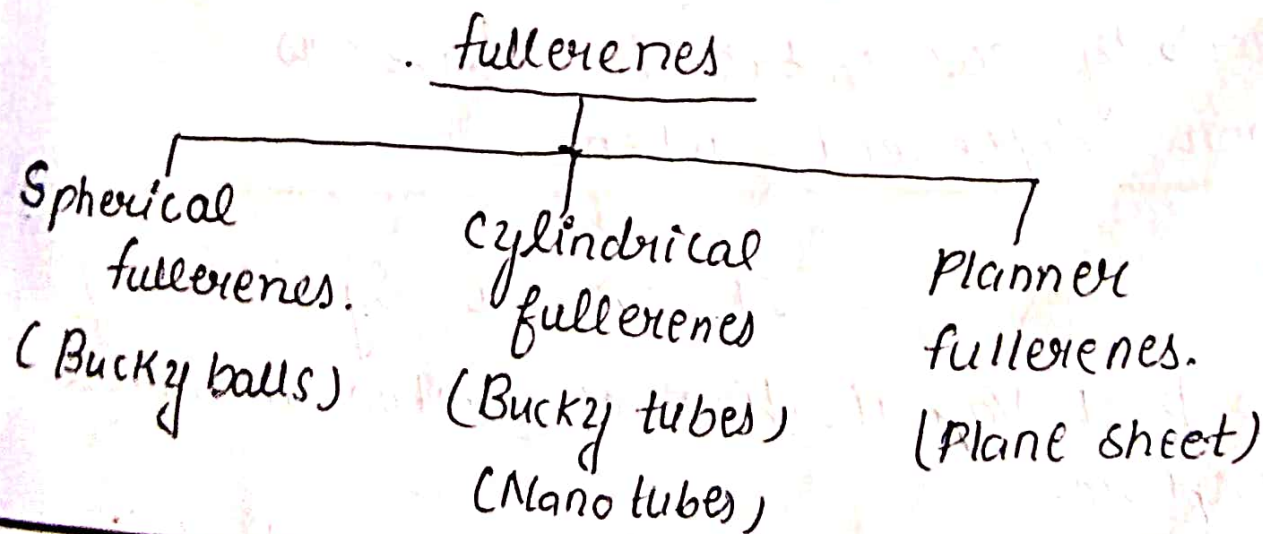 fullerenes
Spherical
fullerenes.
(Bucky balls)
Cylindrical
fullerenes
(Bucky tubes)
(Nano tubes)
Planner
fullerenes.
(Plane sheet)